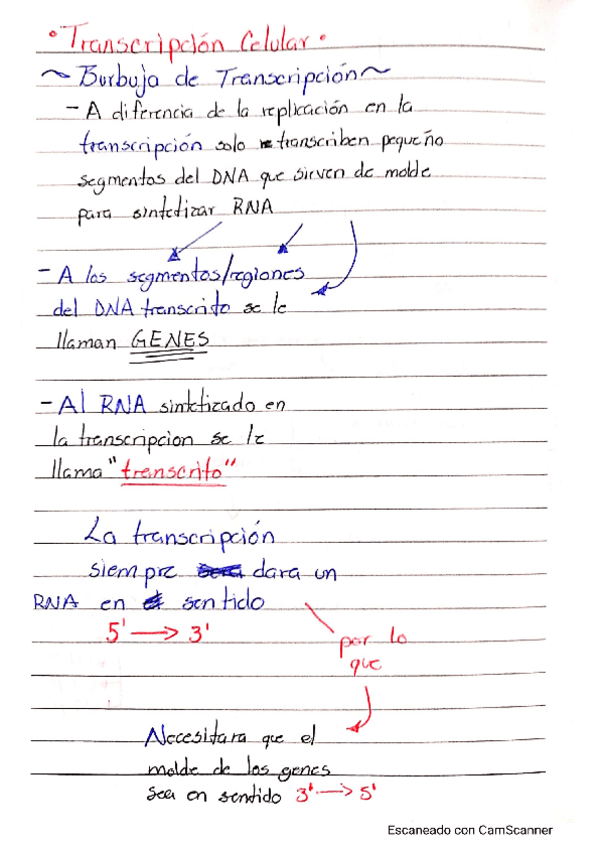 • Transcripción Celular •
~ Burbuja de Transcripción ~
- A diferencia de la replicación en la
transcripción solo transcriben pequeño
segmentos del DNA que sirven de molde
para sintetizar RNA
- A los segmentos/regiones
del DNA transcrito se le
llaman GENES
- Al RNA sintetizado en
la transcripcion se le
llama "transcrito"
La transcripción
siempre dara un
RNA en sentido
5' → 3'
por lo
que
Necesitara que el
molde de los genes
sea en sentido 3' → 5'
Escaneado con CamScanner